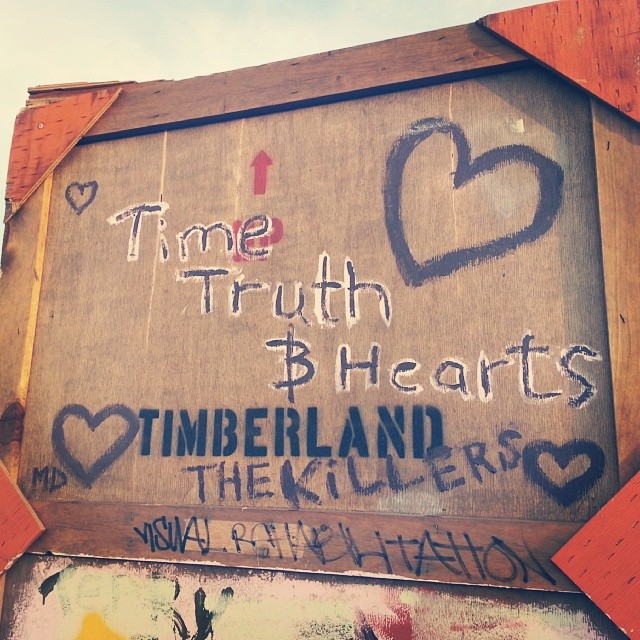 Time
Truth
& Hearts
TIMBERLAND
THE KILLERS
MD
VISUAL REHABILITATION